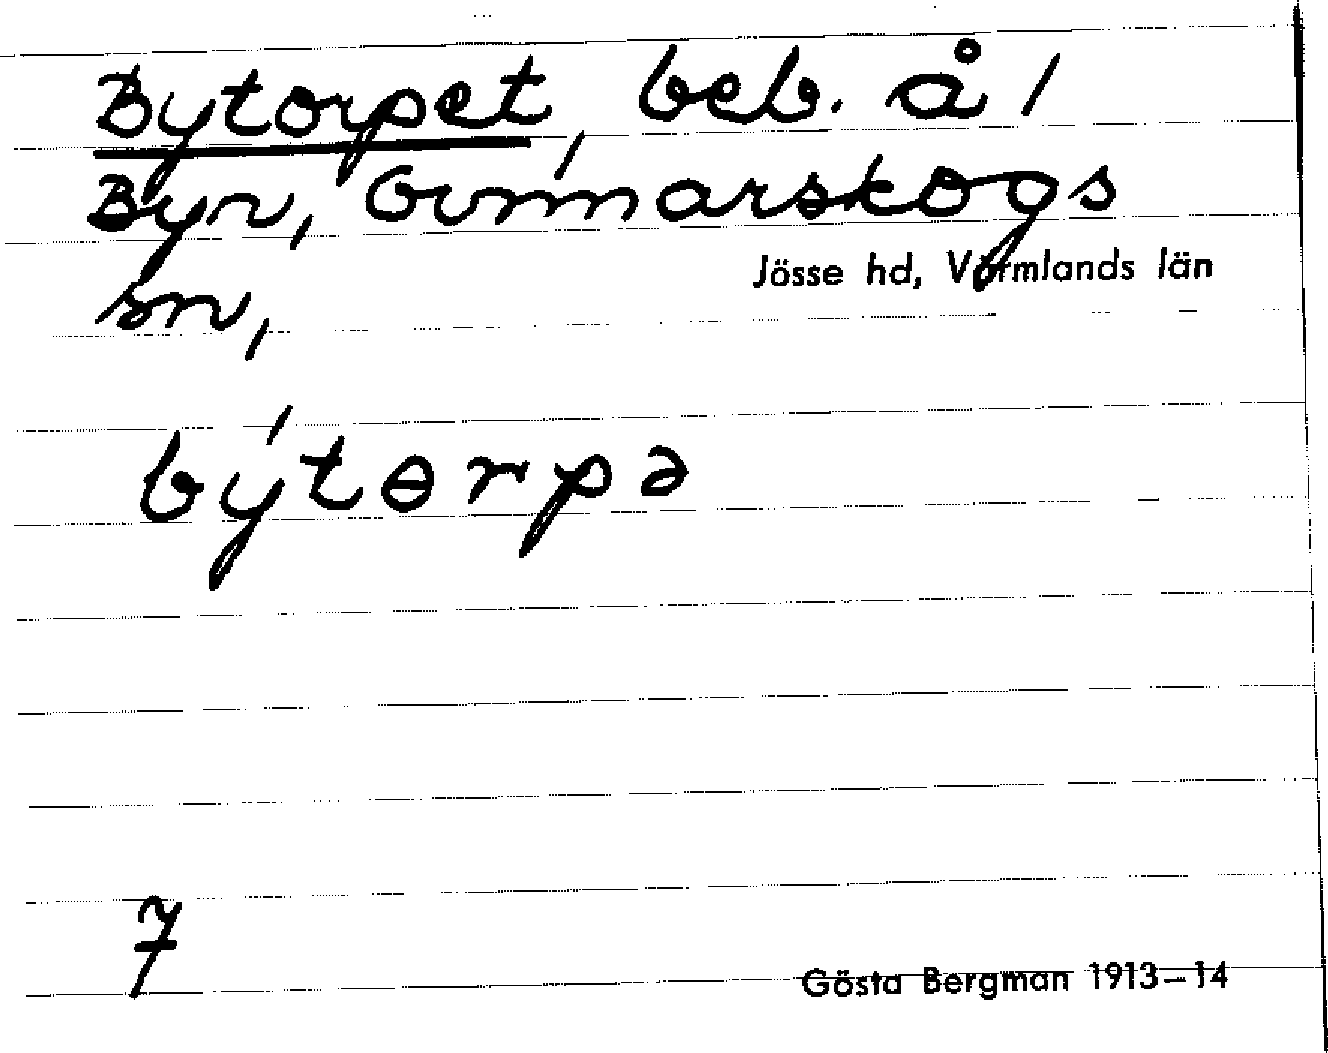 Bytorpet, beb. å /
Byn, Gunnarskogs
Jösse hd, Värmlands län
sn,
býtɵrpə
7
Gösta Bergman 1913–14